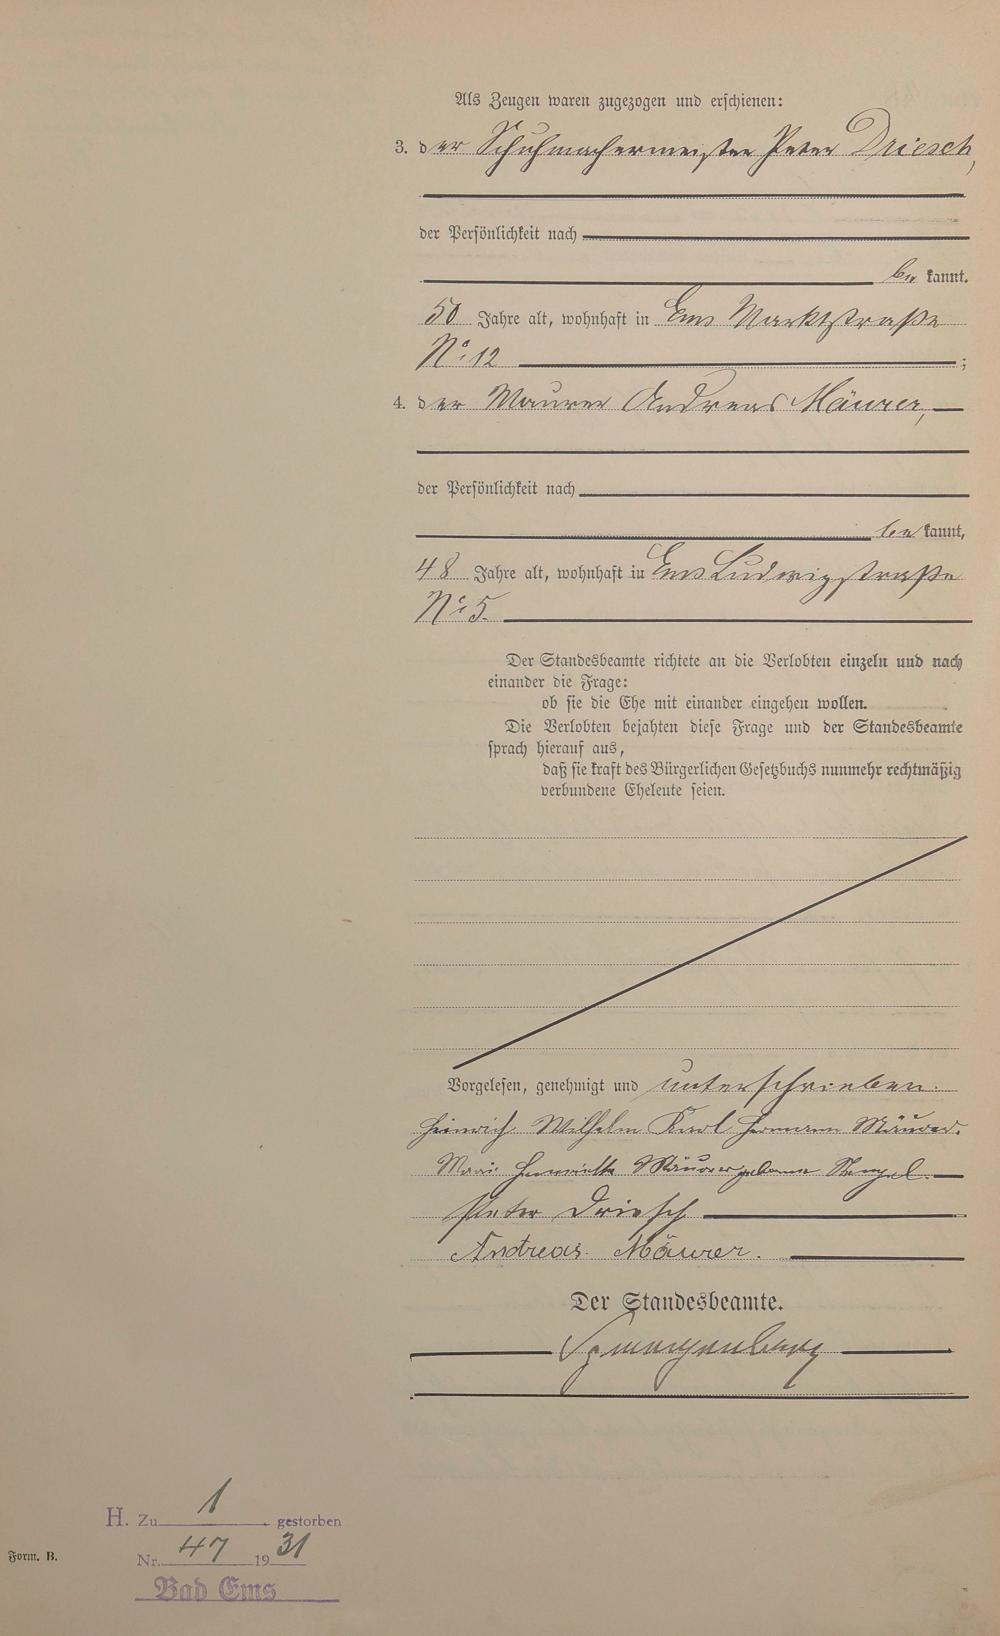 Als Zeugen waren zugezogen und erschienen:
3. der Schuhmachermeister Peter Driesch,
der Persönlichkeit nach
be kannt.
50 Jahre alt, wohnhaft in Ems Marktstraße
No. 12 ;
4. der Maurer Andreas Mäurer,
der Persönlichkeit nach
be kannt,
48 Jahre alt, wohnhaft in Ems Ludwigstraße
No. 5.
Der Standesbeamte richtete an die Verlobten einzeln und nach
einander die Frage:
ob sie die Ehe mit einander eingehen wollen.
Die Verlobten bejahten diese Frage und der Standesbeamte
sprach hierauf aus,
daß sie kraft des Bürgerlichen Gesetzbuchs nunmehr rechtmäßig
verbundene Eheleute seien.
Vorgelesen, genehmigt und unterschrieben.
Heinrich Wilhelm Karl Hermann Mäurer.
Marie Henriette Mäurer geborene Stengel.
Peter Driesch
Andreas Mäurer.
Der Standesbeamte.
H. Zu 1 gestorben
Nr. 47 1931
Form. B.
Bad Ems